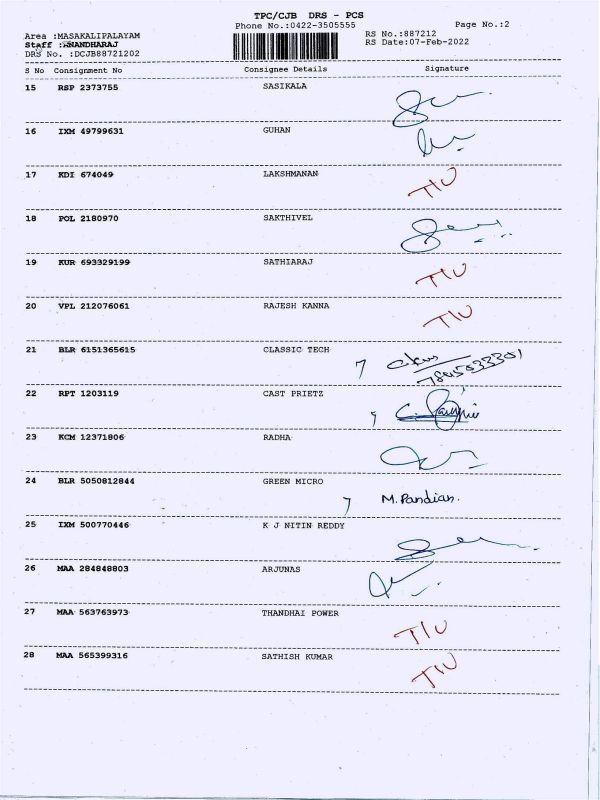 TPC/CJB DRS - PCS
Phone No.:0422-3505555 Page No.:2
Area :MASAKALIPALAYAM RS No.:887212
Staff :ANANDHARAJ RS Date:07-Feb-2022
DRS No. :DCJB88721202
S No Consignment No Consignee Details Signature
15 RSP 2373755 SASIKALA
16 IXM 49799631 GUHAN
17 KDI 674049 LAKSHMANAN TIU
18 POL 2180970 SAKTHIVEL
19 KUR 693329199 SATHIARAJ TIU
20 VPL 212076061 RAJESH KANNA TIU
21 BLR 6151365615 CLASSIC TECH
22 RPT 1203119 CAST PRIETZ
23 KCM 12371806 RADHA
24 BLR 5050812844 GREEN MICRO M. Pandian.
25 IXM 500770446 K J NITIN REDDY
26 MAA 284848803 ARJUNAS
27 MAA 563763973 THANDHAI POWER TIU
28 MAA 565399316 SATHISH KUMAR TIU